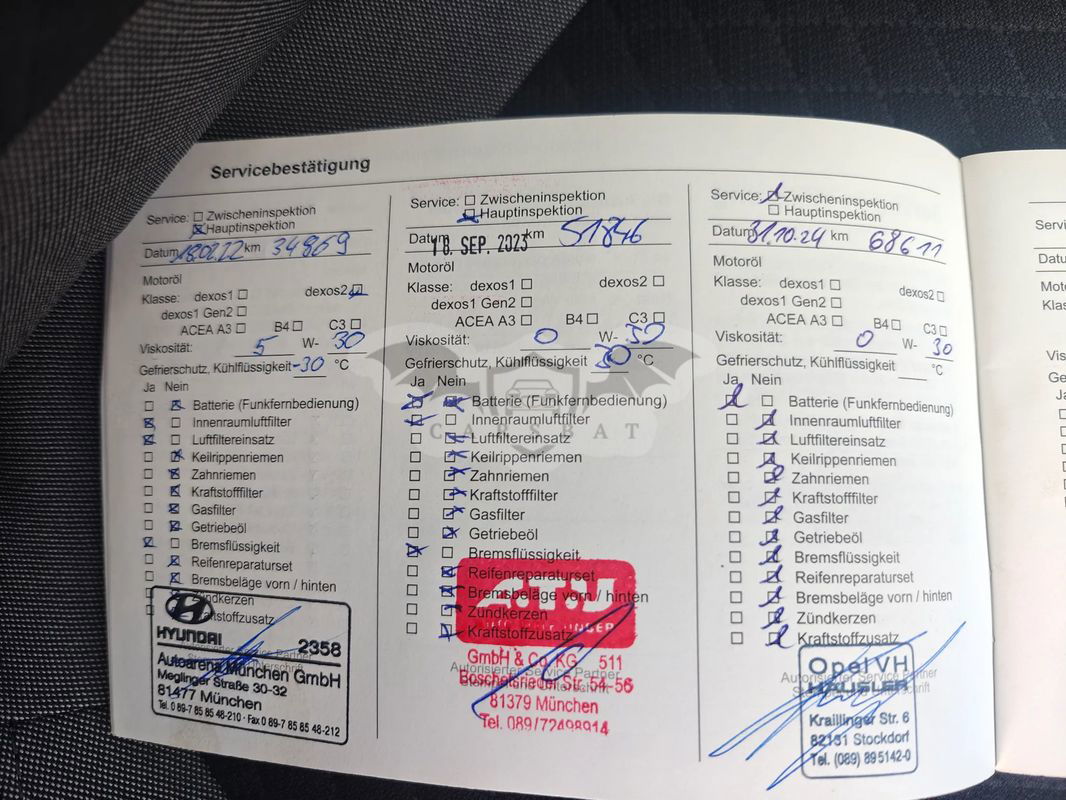 Servicebestätigung
Service: Zwischeninspektion
Hauptinspektion
Datum 18.02.22 km 34869
Motoröl
Klasse: dexos1 dexos2
dexos1 Gen2
ACEA A3 B4 C3
Viskosität: 5 W- 30
Gefrierschutz, Kühlflüssigkeit -30 °C
Ja Nein
Batterie (Funkfernbedienung)
Innenraumluftfilter
Luftfiltereinsatz
Keilrippenriemen
Zahnriemen
Kraftstofffilter
Gasfilter
Getriebeöl
Bremsflüssigkeit
Reifenreparaturset
Bremsbeläge vorn / hinten
Zündkerzen
Kraftstoffzusatz
HYUNDAI 2358
Autoarena München GmbH
Meglinger Straße 30-32
81477 München
Tel. 0 89-7 85 85 48-210 · Fax 0 89-7 85 85 48-212
Service: Zwischeninspektion
Hauptinspektion
Datum 18. SEP. 2023 km 51846
Motoröl
Klasse: dexos1 dexos2
dexos1 Gen2
ACEA A3 B4 C3
Viskosität: 0 W- 30
Gefrierschutz, Kühlflüssigkeit 30 °C
Ja Nein
Batterie (Funkfernbedienung)
Innenraumluftfilter
Luftfiltereinsatz
Keilrippenriemen
Zahnriemen
Kraftstofffilter
Gasfilter
Getriebeöl
Bremsflüssigkeit
Reifenreparaturset
Bremsbeläge vorn / hinten
Zündkerzen
Kraftstoffzusatz
A.T.U
GmbH & Co. KG 511
Autorisierter Service Partner
Boschetsrieder Str. 54-56
81379 München
Tel. 089/72498914
Service: Zwischeninspektion
Hauptinspektion
Datum 31.10.24 km 68611
Motoröl
Klasse: dexos1 dexos2
dexos1 Gen2
ACEA A3 B4 C3
Viskosität: 0 W- 30
Gefrierschutz, Kühlflüssigkeit °C
Ja Nein
Batterie (Funkfernbedienung)
Innenraumluftfilter
Luftfiltereinsatz
Keilrippenriemen
Zahnriemen
Kraftstofffilter
Gasfilter
Getriebeöl
Bremsflüssigkeit
Reifenreparaturset
Bremsbeläge vorn / hinten
Zündkerzen
Kraftstoffzusatz
Opel VH
Autorisierter Service Partner
HÄUSLER
Kraillinger Str. 6
82131 Stockdorf
Tel. (089) 895142-0
CARSBAT